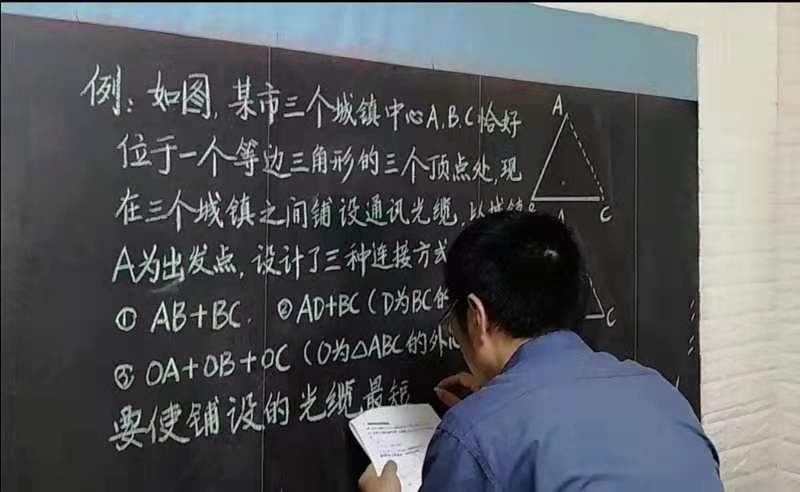 例：如图，某市三个城镇中心A、B、C恰好
位于一个等边三角形的三个顶点处，现
在三个城镇之间铺设通讯光缆，以城镇
A为出发点，设计了三种连接方式
① AB+BC. ② AD+BC（D为BC的
③ OA+OB+OC（O为△ABC的外心
要使铺设的光缆最短
A
C
C